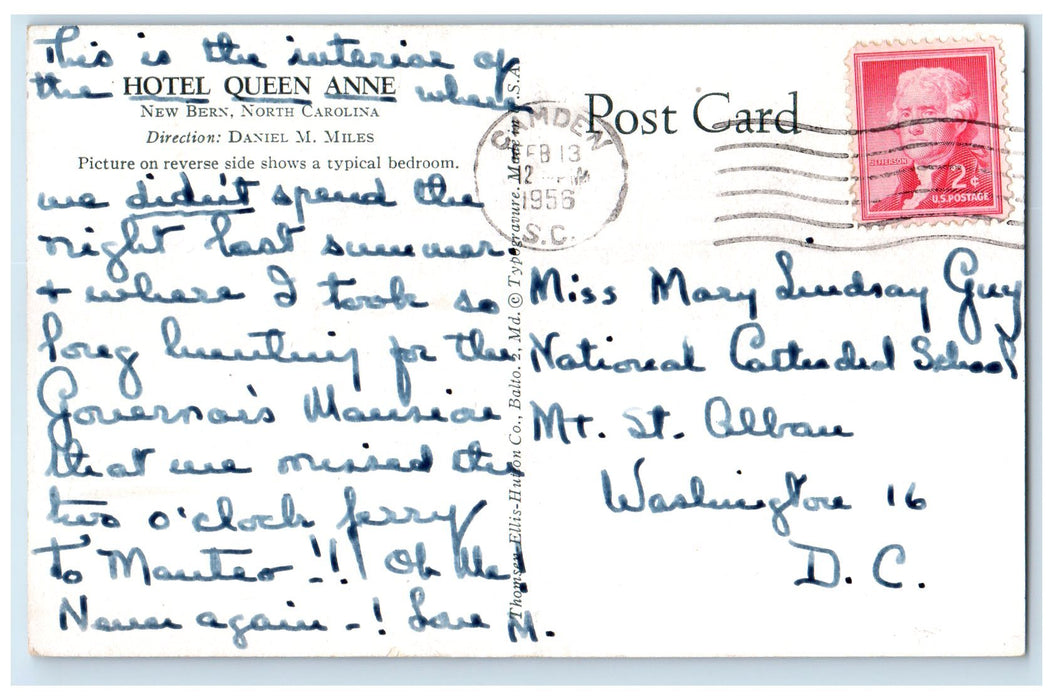 This is the interior of
the HOTEL QUEEN ANNE where
NEW BERN, NORTH CAROLINA
Direction: DANIEL M. MILES
Picture on reverse side shows a typical bedroom.
we didn't spend the
night last summer
+ where I took so
long hunting for the
Governor's Mansion
that we missed the
two o'clock ferry
to Manteo -!! Oh Me
Never again -! Love M.
Thomsen-Ellis-Hutton Co., Balto. 2, Md. © Typogravure. Made in U.S.A.
Post Card
CAMDEN
FEB 13
12 PM
1956
S.C.
JEFFERSON
2¢
U.S. POSTAGE
Miss Mary Lindsay Guy
National Cathedral School
Mt. St. Alban
Washington 16
D. C.